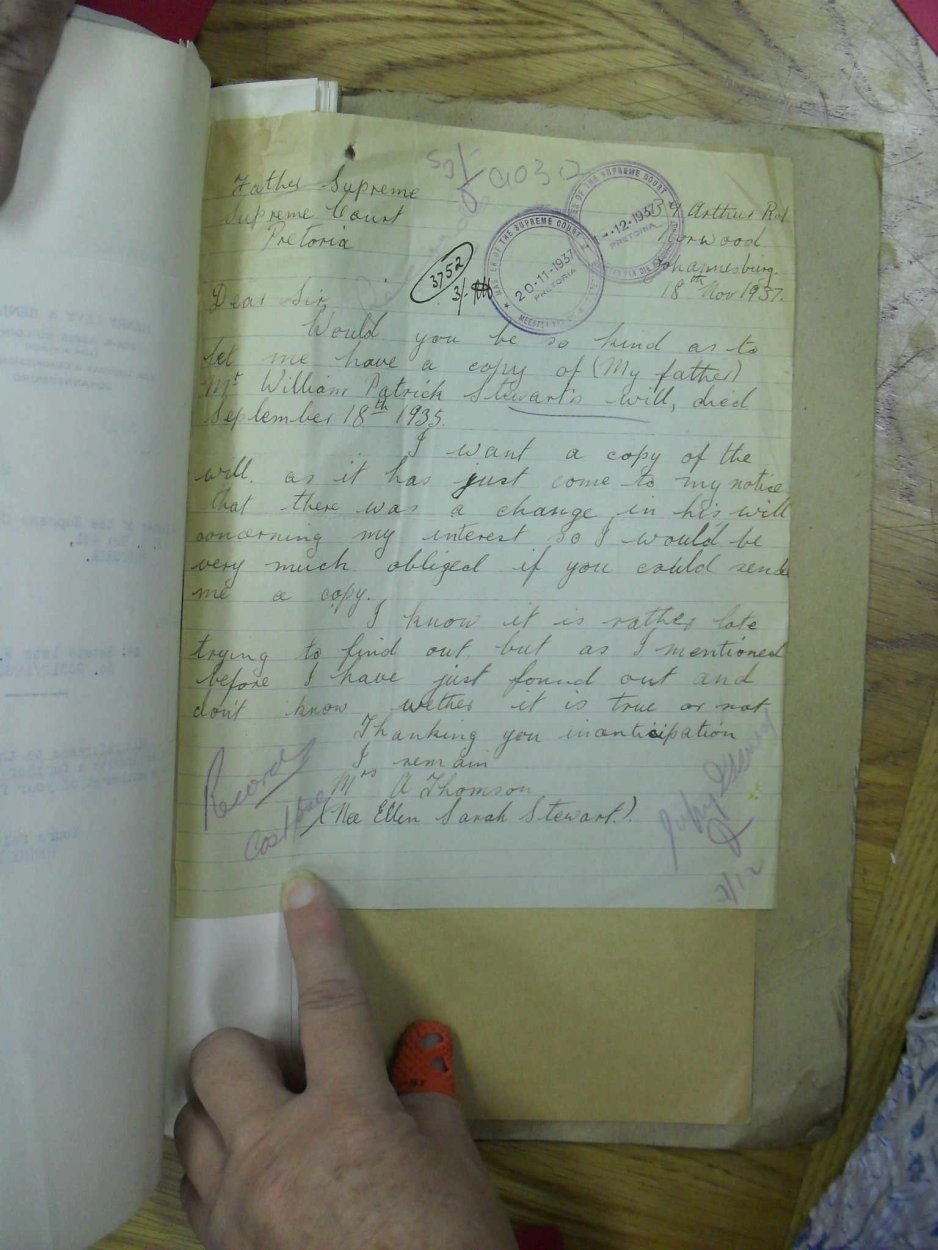 Father Supreme
Supreme Court
Pretoria
Arthur Rd
Norwood
Johannesburg.
18th Nov 1937.
MASTER OF THE SUPREME COURT
20-11-1937
PRETORIA
MEESTER
OF THE SUPREME COURT
-12-1937
PRETORIA
3752
3/.
Dear Sir,
Would you be so kind as to
let me have a copy of (My father)
Mr William Patrick Stewart's will, died
September 18th 1935.
I want a copy of the
will. as it has just come to my notice
that there was a change in his will
concerning my interest so I would be
very much obliged if you could send
me a copy.
I know it is rather late
trying to find out. but as I mentioned
before I have just found out and
don't know wether it is true or not
Thanking you inanticipation
I remain
Mrs A Thomson
(Nee Ellen Sarah Stewart.).
Record